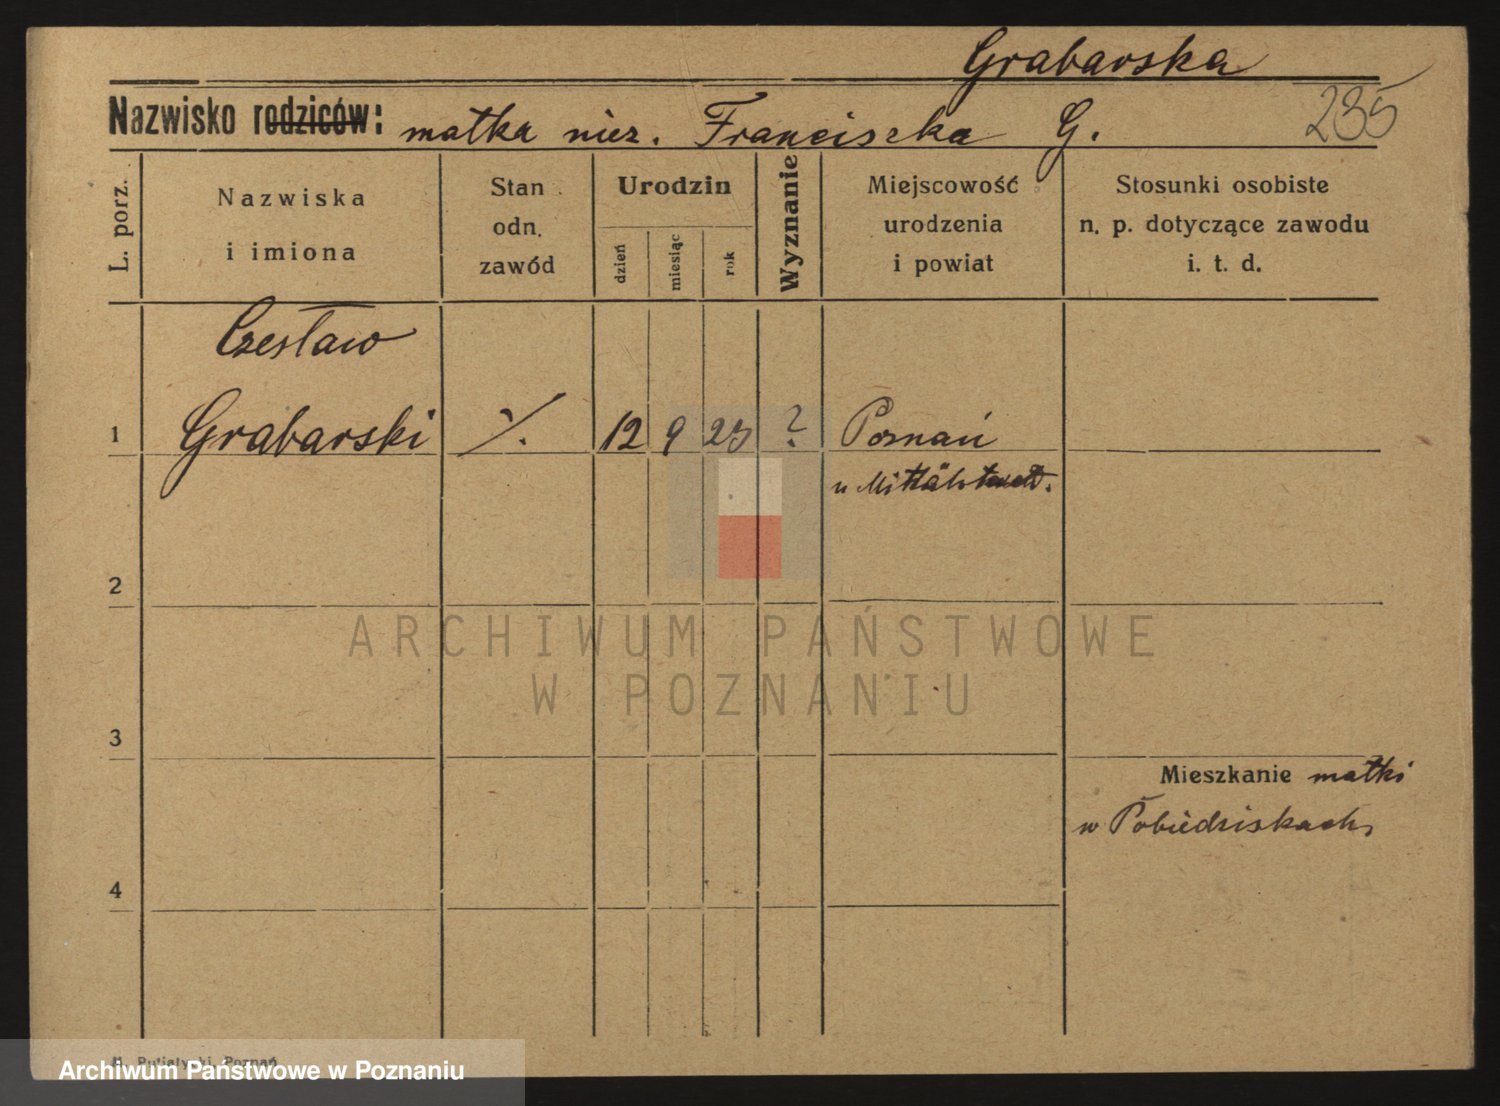 Grabarska
Nazwisko rodziców: matka niez. Franciszka G.
235
L. porz.
Nazwiska
i imiona
Stan
odn.
zawód
Urodzin
dzień
miesiąc
rok
Wyznanie
Miejscowość
urodzenia
i powiat
Stosunki osobiste
n. p. dotyczące zawodu
i. t. d.
Czesław
1 Grabarski ./. 12 9 23 ? Poznań
2
ARCHIWUM PAŃSTWOWE
W POZNANIU
3
Mieszkanie matki
w Pobiedziskach
4
Poznań
Archiwum Państwowe w Poznaniu